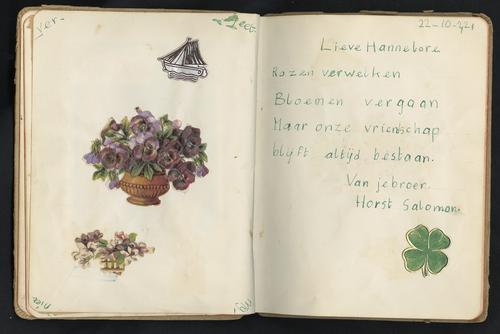 ver-
geet
mij
niet
22-10-'42
Lieve Hannelore
Rozen verwelken
Bloemen vergaan
Maar onze vriendschap
blijft altijd bestaan.
Van je broer.
Horst Salomon.